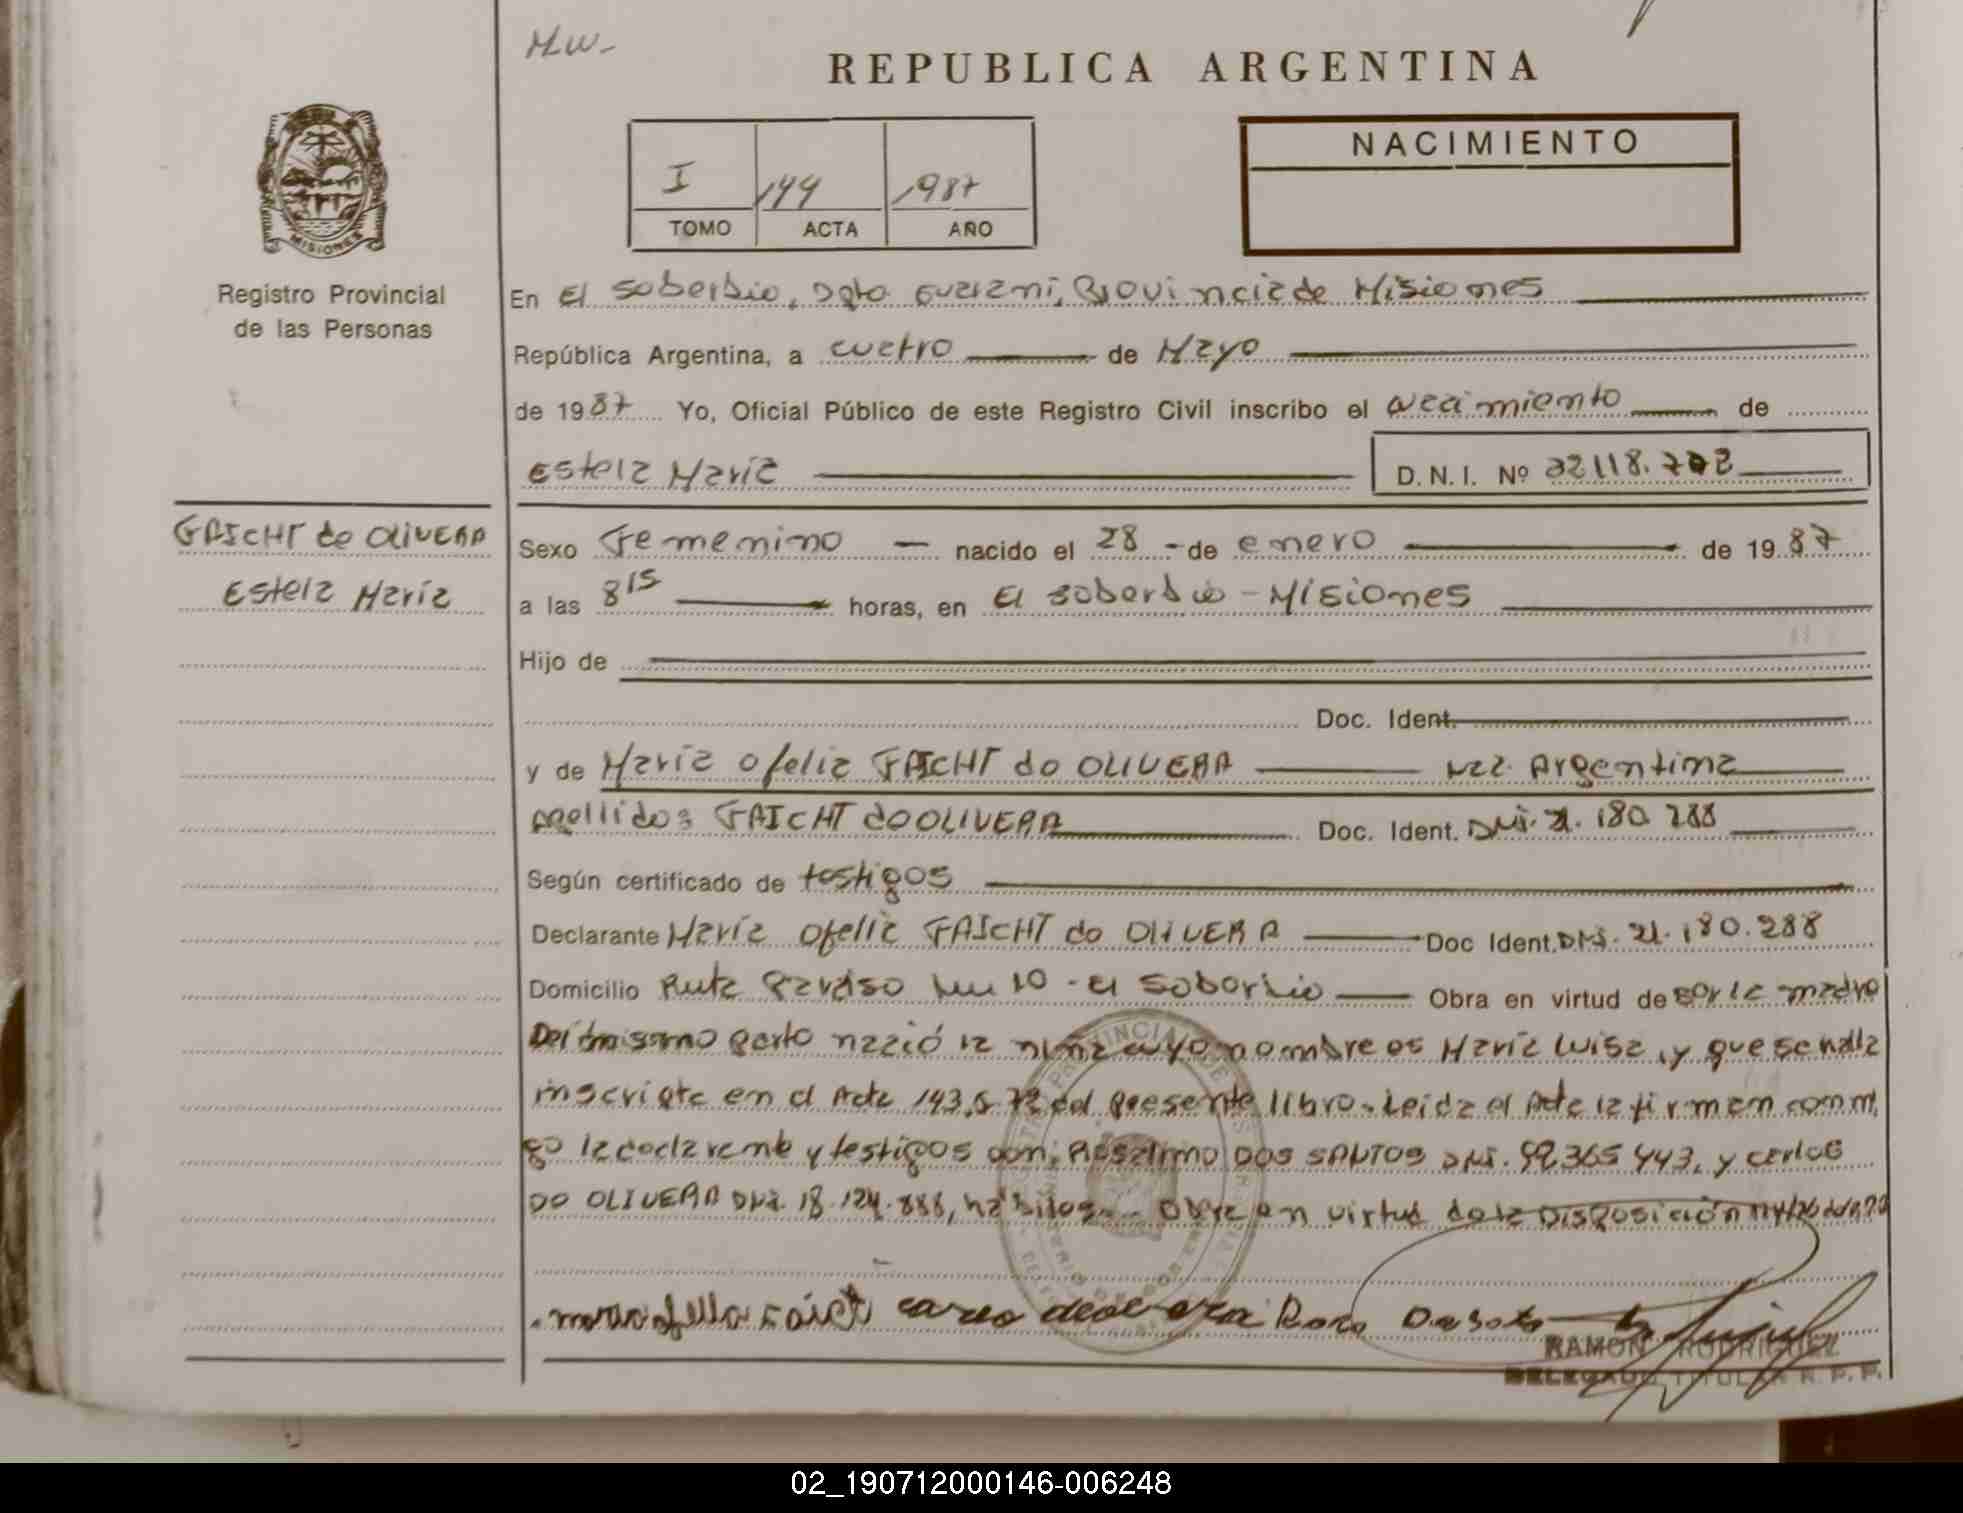 M.W-
REPUBLICA ARGENTINA
NACIMIENTO
I 144 1987
TOMO ACTA AÑO
MISIONES
Registro Provincial
de las Personas
En El Soberbio, Dpto Guarani, Provincia de Misiones
República Argentina, a cuatro de Mayo
de 1987 Yo, Oficial Público de este Registro Civil inscribo el nacimiento de
Estela María D.N.I. Nº 32118.
GAICHT do OLIVERA
Estela María
Sexo Femenino - nacido el 28 - de enero de 1987
a las 8 15 horas, en El Soberbio - Misiones
Hijo de
Doc. Ident.
y de María Ofelia GAICHT do OLIVERA Nac. Argentina
apellidos GAICHT do OLIVERA Doc. Ident. DNI. 21. 180 288
Según certificado de testigos
Declarante María Ofelia GAICHT do OLIVERA Doc Ident. DNI. 21. 180.288
Domicilio Ruta Paraiso km 10 - El Soberbio Obra en virtud de ser la madre
Del mismo parto nació la niña cuyo nombre es María Luisa, y que se halla
inscripta en el Acta 143, del presente libro. Leida el Acta la firman conmi
go la declarante y testigos don, DOS SANTOS DNI. 92.365 443, y Carlos
DO OLIVERA DNI. 18.124.888, hábiles. Obra en virtud de la Disposición
RAMON RODRIGUEZ
DELEGADO TITULAR R. P. P.
02_190712000146-006248